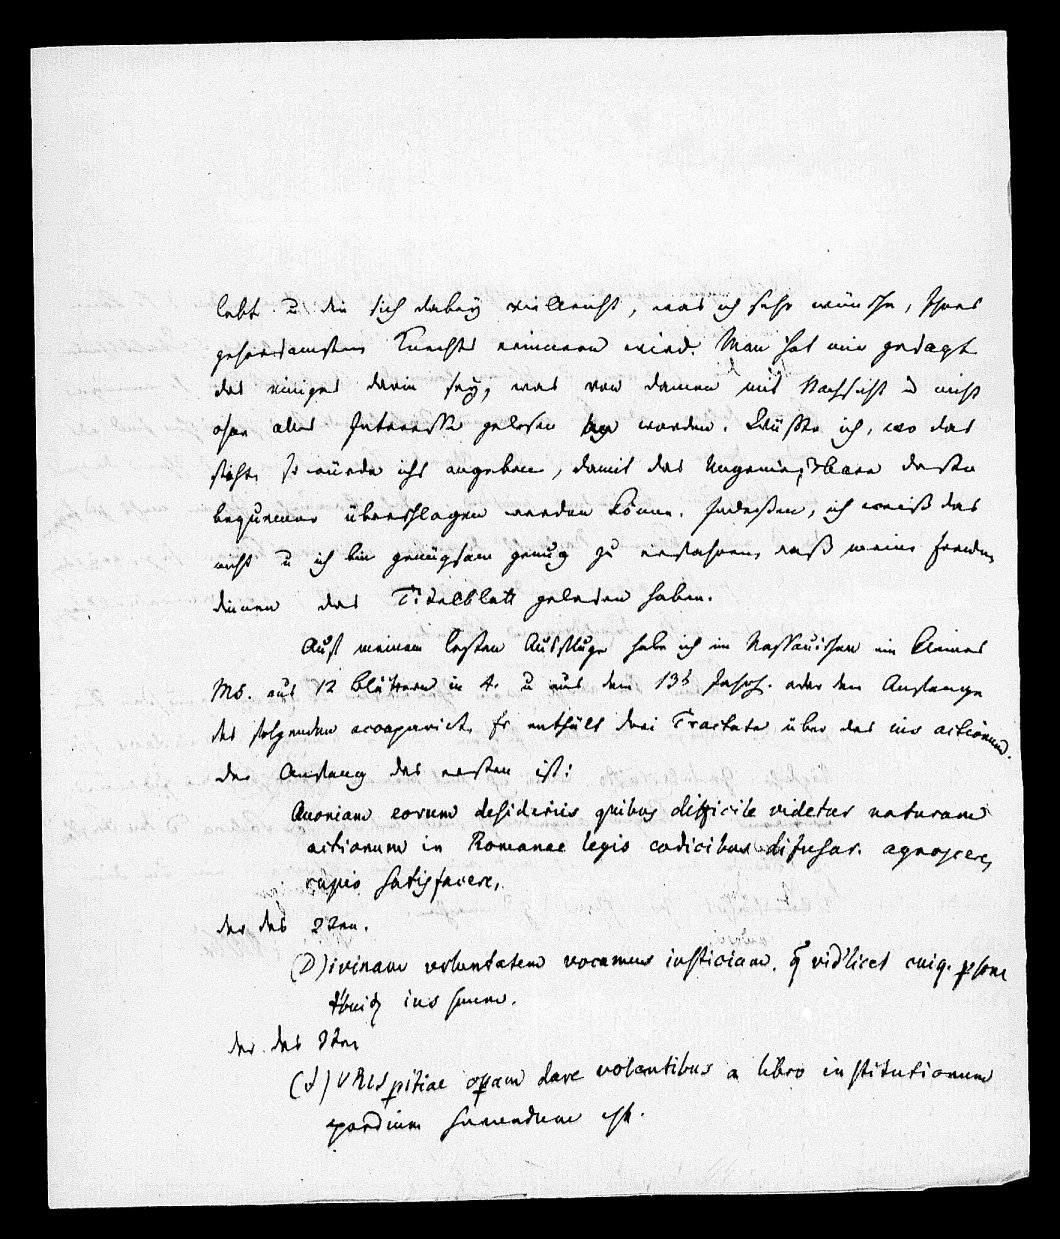 lebt u. die sich dabey vielleicht, was ich sehr wünsche, Ihres
gehorsamsten Knechts erinnern wird. Man hat mir gesagt
das einiges darin sey, was von damen mit Nachsicht u nicht
ohne alles Interesse gelesen worden. Wüßte ich, wo das
steht, so würde ichs angeben, damit das Ungenießbare desto
bequemer überschlagen werden könne. Indessen, ich weiß das
nicht u ich bin genügsam genug zu erfahren, daß meine Freun
dinnen das Titelblatt gelesen haben.
Auf meinem letzten Ausfluge habe ich im Nassauischen ein kleines
Ms. aus 12 Blättern in 4. u aus dem 13t Jahrh. oder dem Anfange
des folgenden acaparirt. Er enthält drei Tractate über das ius actionum.
der Anfang des ersten ist:
Quoniam eorum desideriis quibus difficile videtur naturam
actionum in Romanae legis codicibus difusar. agnoscere,
cupio satisfacere,
der des 2ten.
(D)ivinam voluntatem vocamus iusticiam. q vid'licet cuiq. psone
tbuit ius suum.
der des 3ten
(I)URIS pitiae opam dare volentibus a libro institutionum
exordium sumendum est.